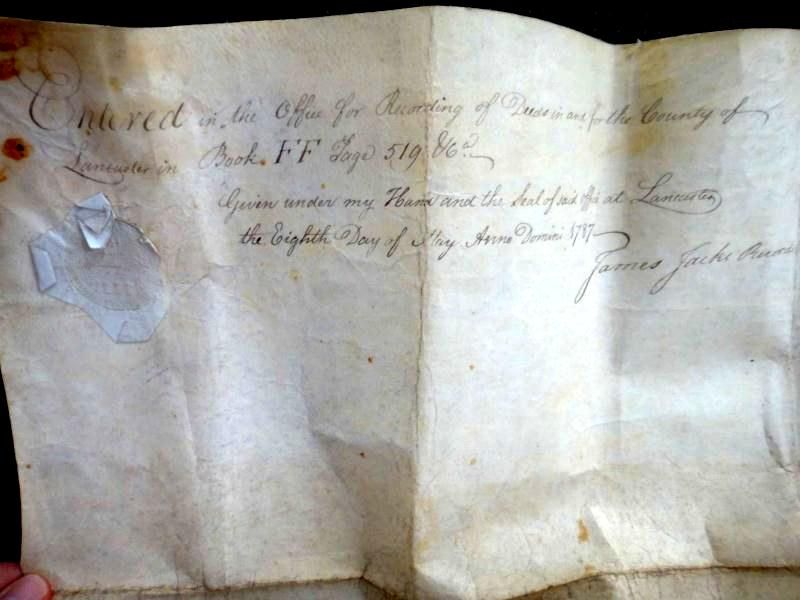 Entered in the Office for Recording of Deeds in and for the County of
Lancaster in Book FF Page 519 &c.
Given under my Hand and the Seal of said office at Lancaster
the Eighth Day of May Anno Domini 1787
James Jacks Record